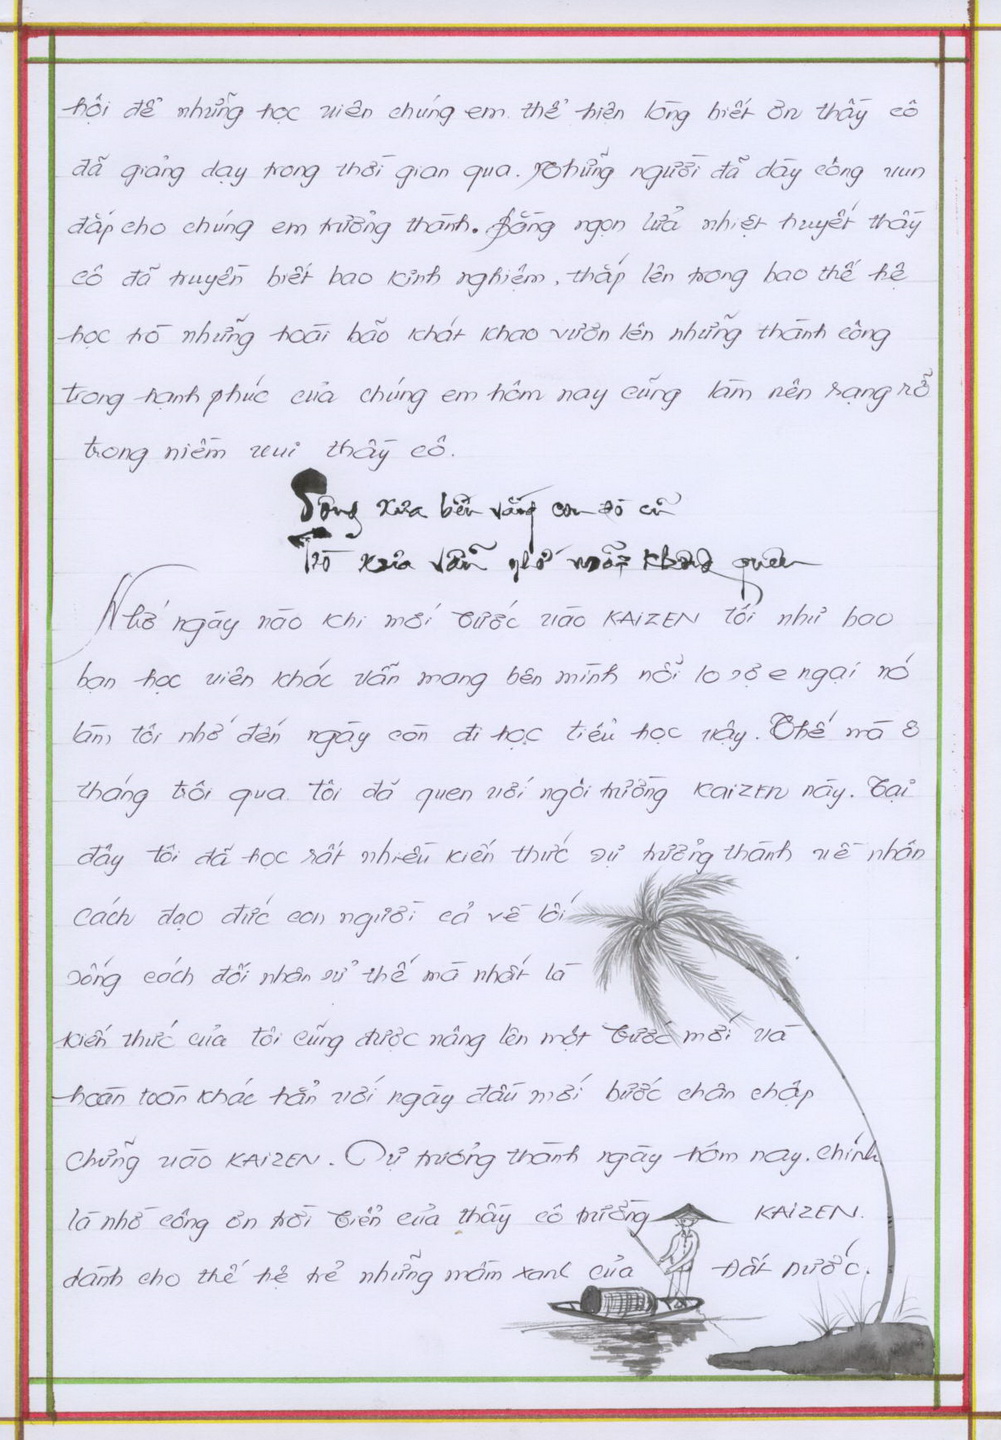 hội để những học viên chúng em thể hiện lòng biết ơn thầy cô
đã giảng dạy trong thời gian qua. Những người đã dày công vun
đắp cho chúng em trưởng thành. Bằng ngọn lửa nhiệt huyết thầy
cô đã truyền biết bao kinh nghiệm, thắp lên trong bao thế hệ
học trò những hoài bão khát khao vươn lên những thành công
trong hạnh phúc của chúng em hôm nay cũng làm nên rạng rỡ
trong niềm vui thầy cô.
Sông xưa bến vắng con đò cũ
Trò xưa vẫn nhớ mãi không quên
Nhớ ngày nào khi mới bước vào KAIZEN tôi như bao
bạn học viên khác vẫn mang bên mình nỗi lo sợ e ngại nó
làm tôi nhớ đến ngày còn đi học tiểu học vậy. Thế mà 8
tháng trôi qua tôi đã quen với ngôi trường KAIZEN này. Tại
đây tôi đã học rất nhiều kiến thức sự trưởng thành về nhân
cách đạo đức con người cả về lối
sống cách đối nhân sử thế mà nhất là
kiến thức của tôi cũng được nâng lên một bước mới và
hoàn toàn khác hẳn với ngày đầu mới bước chân chập
chững vào KAIZEN. Sự trưởng thành ngày hôm nay. chính
là nhờ công ơn trời biển của thầy cô trường KAIZEN.
dành cho thế hệ trẻ những mầm xanh của Đất nước.